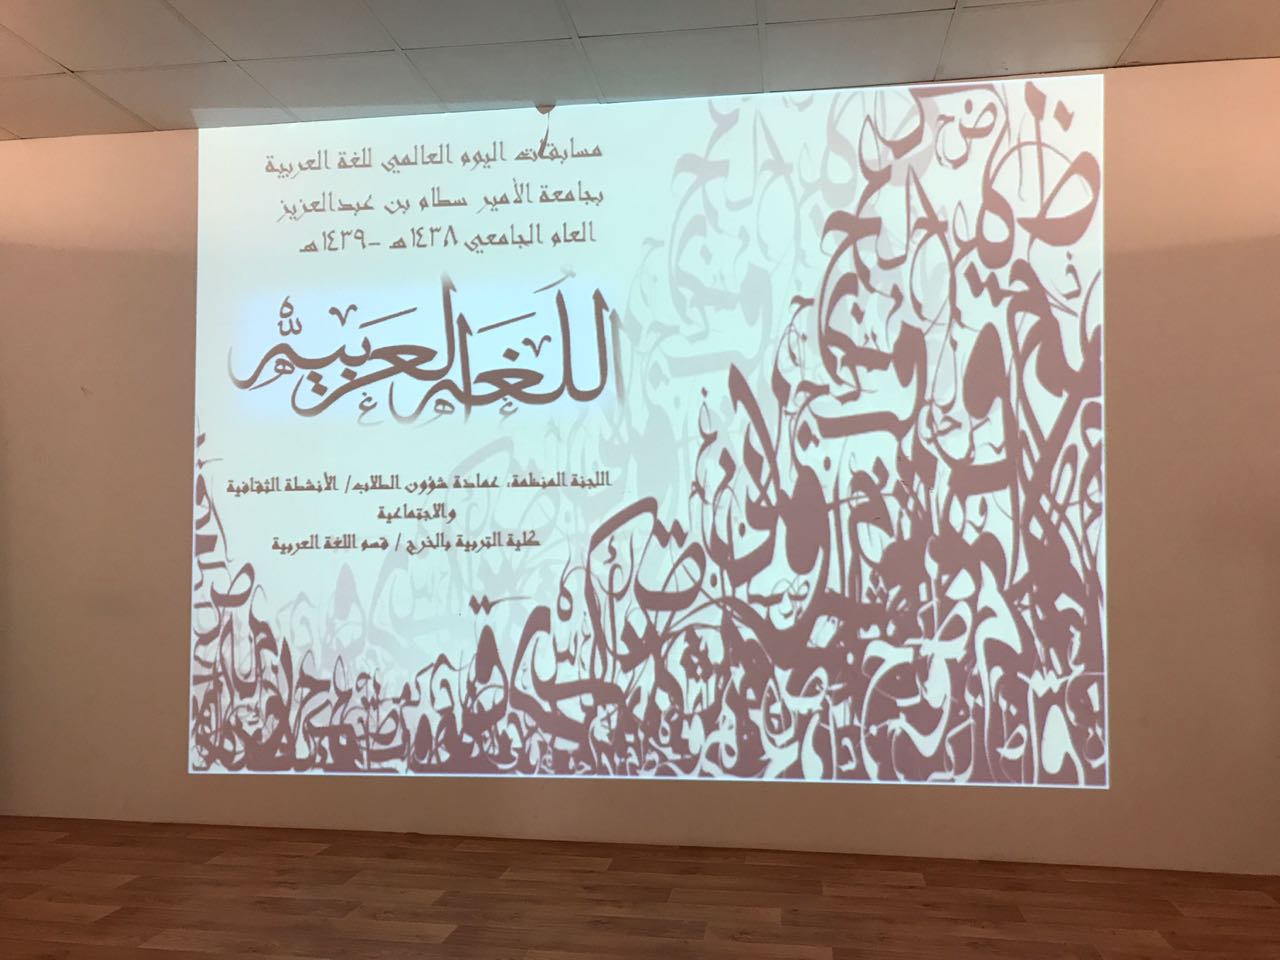 مسابقات اليوم العالمي للغة العربية
بجامعة الأمير سطام بن عبدالعزيز
العام الجامعي ١٤٣٨هـ -١٤٣٩هـ
اللغة العربية
اللجنة المنظمة: عمادة شؤون الطلاب/ الأنشطة الثقافية
والاجتماعية
كلية التربية بالخرج / قسم اللغة العربية